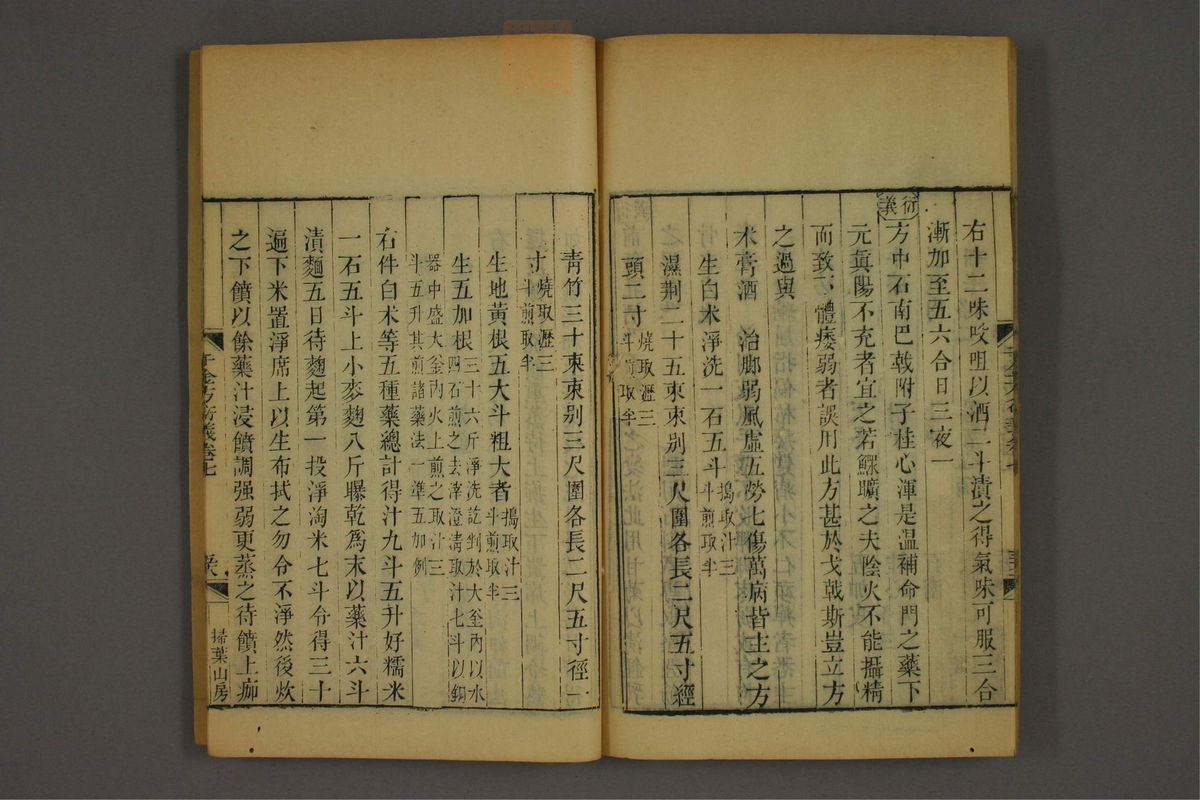 右十二味㕮咀以酒二斗漬之得氣味可服三合
漸加至五六合日三夜一
衍義
方中石南巴戟附子桂心渾是温補命門之藥下
元眞陽不充者宜之若鰥曠之夫陰火不能攝精
而致下體痿弱者誤用此方甚於戈戟斯豈立方
之過與
术膏酒 治腳弱風虛五勞七傷萬病皆主之方
生白术淨洗一石五斗搗取汁三斗煎取半
濕荆二十五束束别三尺圍各長二尺五寸經
頭二寸燒取瀝三斗煎取半
青竹三十束束别三尺圍各長二尺五寸徑一
寸燒取瀝三斗煎取半
生地黃根五大斗粗大者搗取汁三斗煎取半
生五加根三十六斤淨洗訖剉於大釜內以水四石煎之去滓澄淸取汁七斗以銅
器中盛大釜內火上煎之取汁三斗五升其煎諸藥法一準五加例
右件白术等五種藥總計得汁九斗五升好糯米
一石五斗上小麥麴八斤曝乾爲末以藥汁六斗
漬麵五日待麴起第一投淨淘米七斗令得三十
遍下米置淨席上以生布拭之勿令不淨然後炊
之下饙以餘藥汁浸饙調强弱更蒸之待饙上痂
千金方衍義卷七
掃葉山房